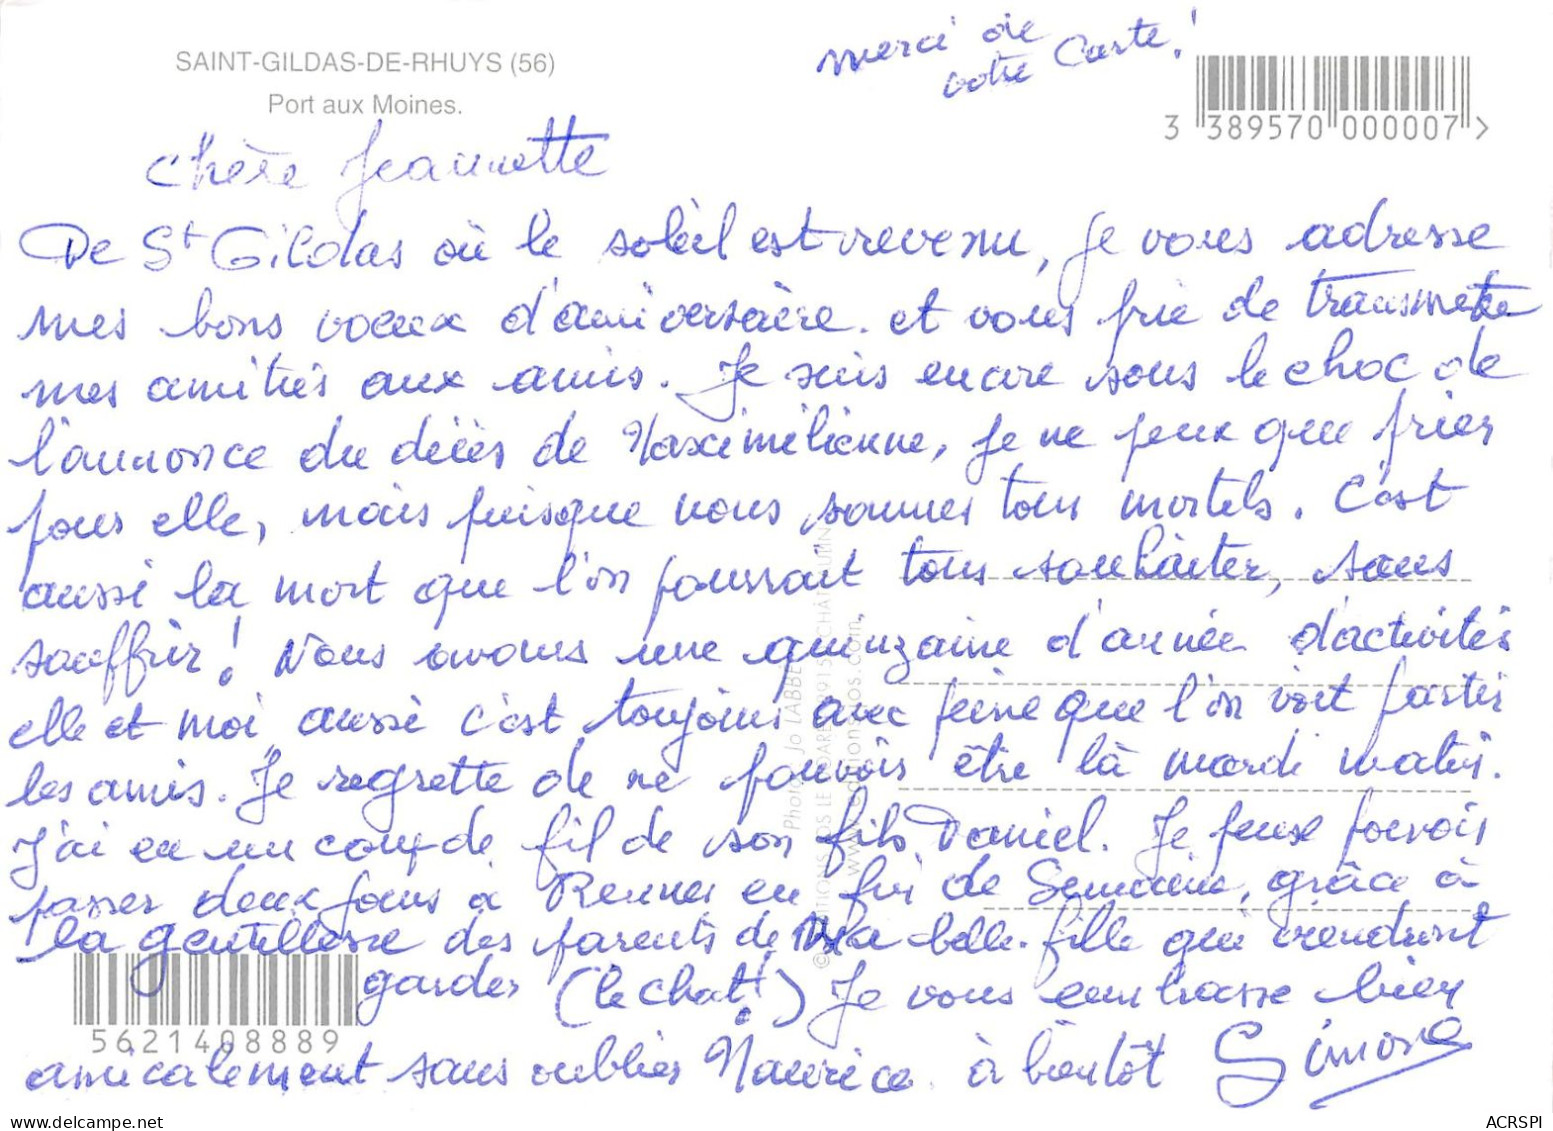 SAINT-GILDAS-DE-RHUYS (56)
Port aux Moines.
merci de
votre Carte!
3 389570 000007 >
Chère Jeannette
De St Gildas où le soleil est revenu, je vous adresse
mes bons voeux d'anniversaire. et vous prie de transmettre
mes amitiés aux amis. Je suis encore sous le choc de
l'annonce du décès de Maximilienne, je ne peux que prier
pour elle, mais puisque nous sommes tous mortels. C'est
aussi la mort que l'on pourrait tous souhaiter, sans
souffrir! Nous avons une quinzaine d'année d'activités
elle et moi, aussi c'est toujours avec peine que l'on voit partir
les amis. Je regrette de ne pouvoir être là mardi matin.
J'ai eu un coup de fil de son fils Daniel. Je pense pouvoir
passer deux jours à Rennes en fin de Semaine, grâce à
la gentillesse des parents de ma belle-fille qui viendront
garder (le chat!) Je vous embrasse bien
amicalement sans oublier Maurice. à bientôt Simone
5621408889
Photos Jo LABBE
© EDITIONS JOS LE DOARÉ 29150 CHÂTEAULIN
www.editions-jos.com
ACRSPI